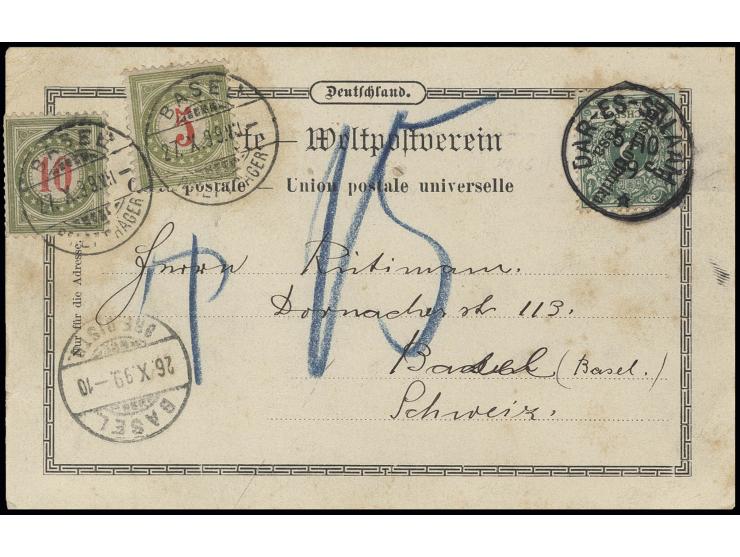 Deutschland.
Weltpostverein
Carte postale — Union postale universelle
Nur für die Adresse.
10
5
BASEL
BRIEFTRÄGER
BASEL
BRIEFTRÄGER
DAR-ES-SALAAM
5/10
T 15
Herrn Rütimann.
Dornacherstr 113.
Basel (Basel.)
Schweiz.
BASEL
26.X.99.-10